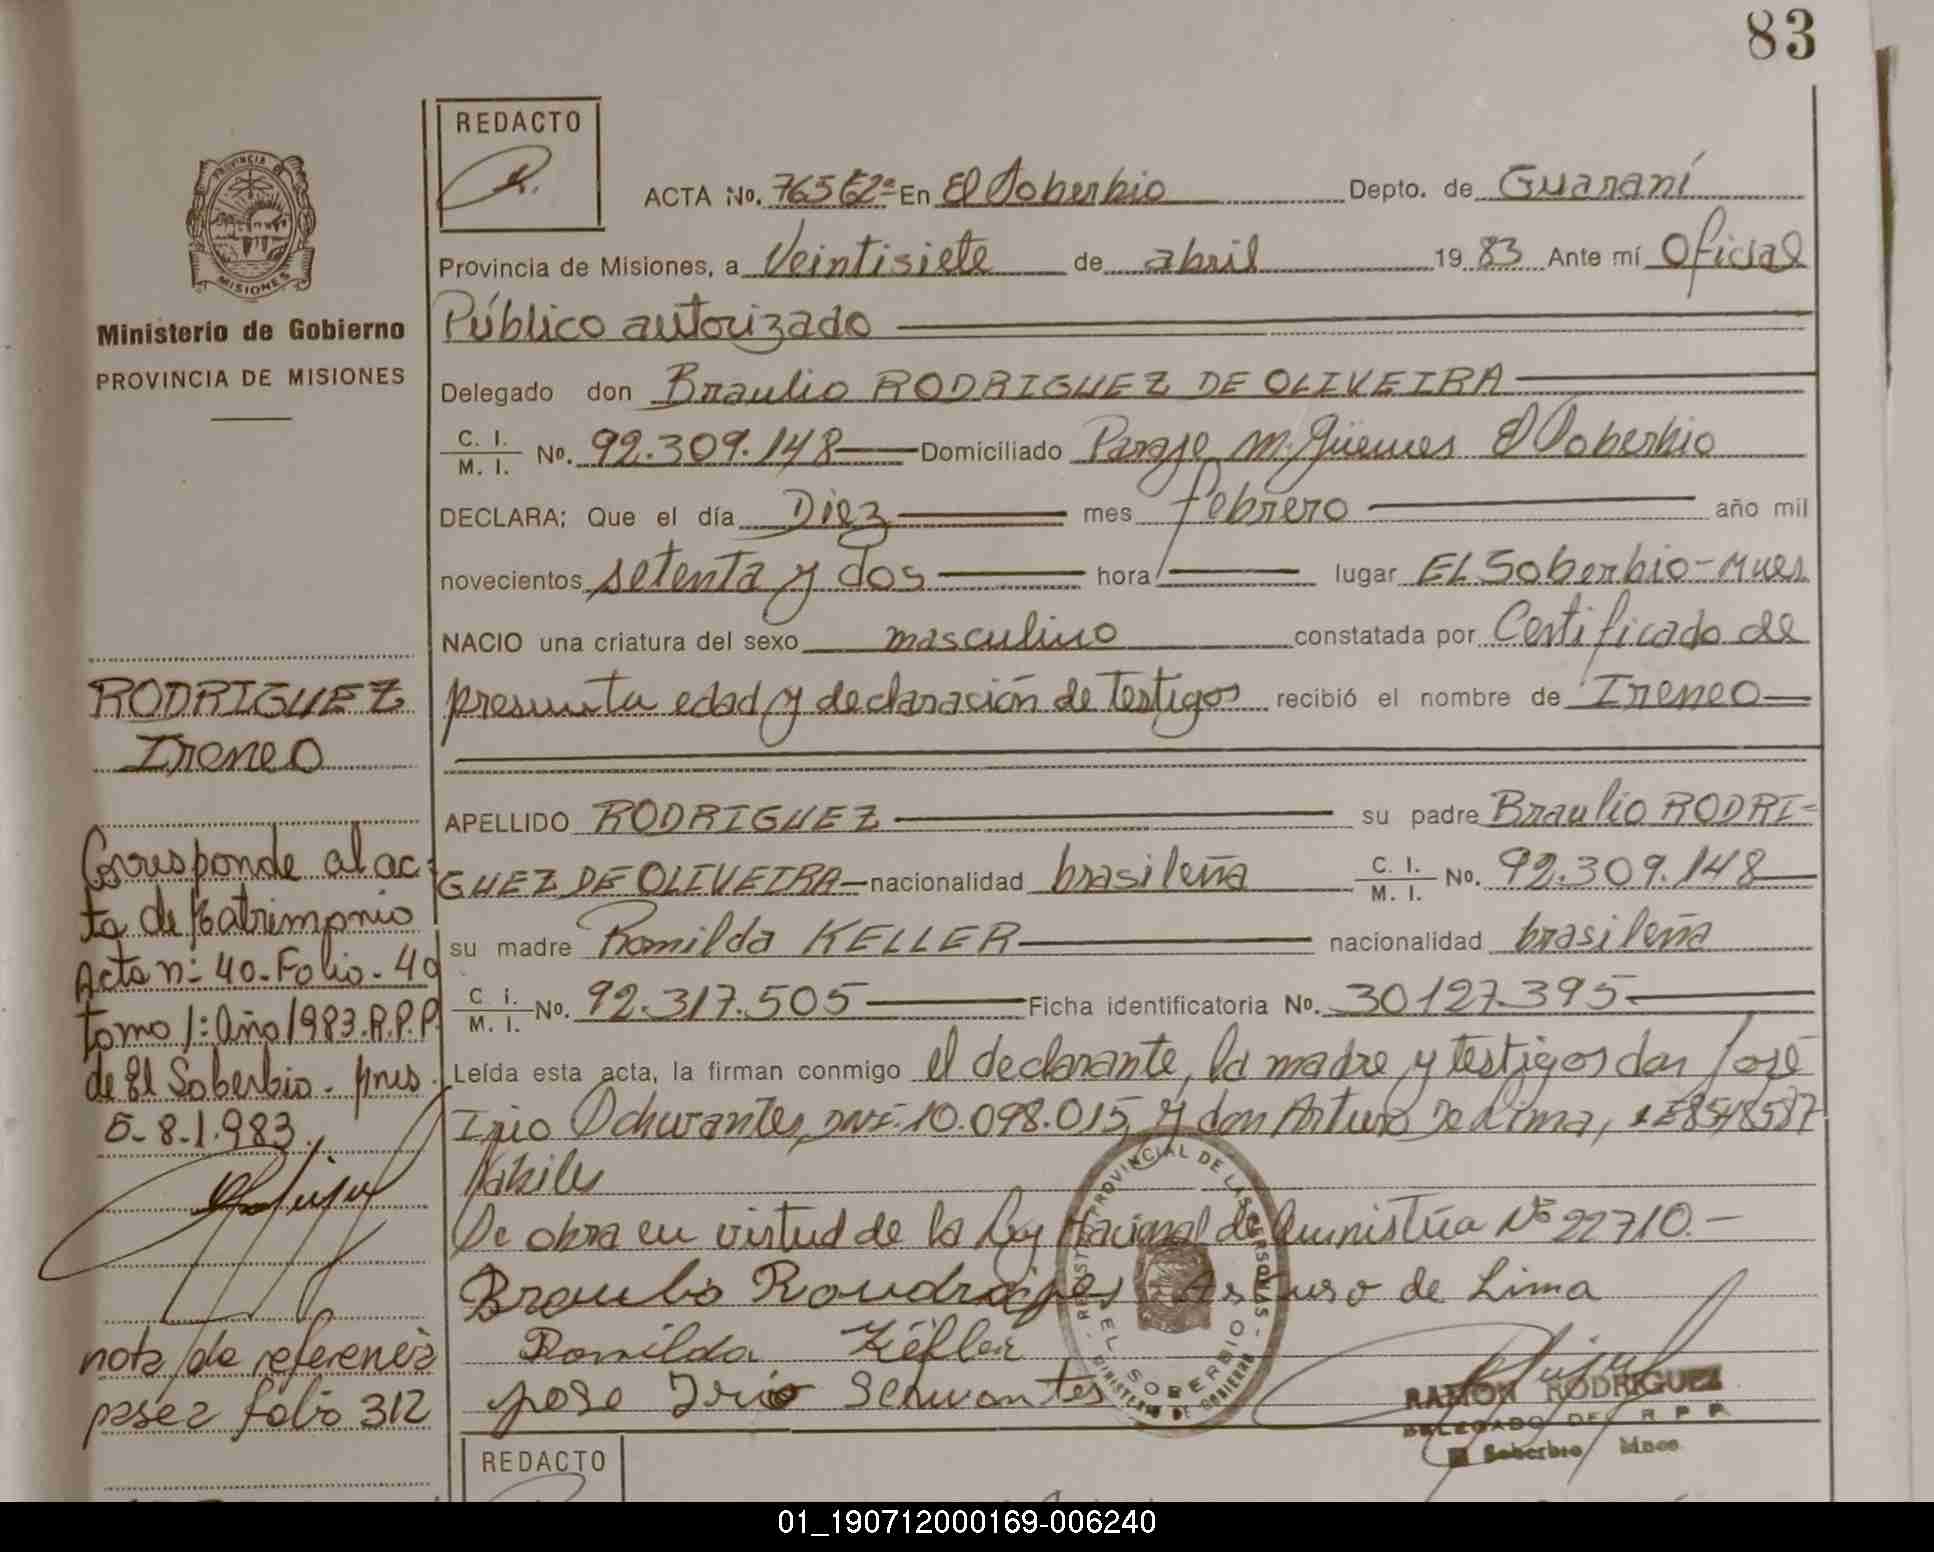 83
REDACTO
ACTA No. 765 E2º En El Soberbio Depto. de Guaraní
Provincia de Misiones, a Veintisiete de abril 19 83 Ante mí Oficial
Público autorizado
Delegado don Braulio RODRIGUEZ DE OLIVEIRA
C. I. M. I. No. 92.309.148 Domiciliado Paraje M. Güemes El Soberbio
DECLARA: Que el día Diez mes febrero año mil
novecientos setenta y dos hora lugar EL Soberbio-Mnes
NACIO una criatura del sexo masculino constatada por Certificado de
presunta edad y declaración de testigos recibió el nombre de Ireneo
APELLIDO RODRIGUEZ su padre Braulio RODRI-
GUEZ DE OLIVEIRA nacionalidad brasileña C. I. M. I. No. 92.309.148
su madre Romilda KELLER nacionalidad brasileña
C. I. M. I. No. 92.317.505 Ficha identificatoria No. 30127.395
Leída esta acta, la firman conmigo el declarante, la madre y testigos don José
Irio DNI-10.098.015, y don Arturo De Lima,
De obra en virtud de la Ley Nacional de Amnistía Nº 22710.-
Braulio Arturo de Lima
Romilda
jose Irio
REGISTRO PROVINCIAL DE LAS PERSONAS
EL SOBERBIO
MINISTERIO DE GOBIERNO
RAMON RODRIGUEZ
DELEGADO DEL R P P
El Soberbio Mnes
Ministerio de Gobierno
PROVINCIA DE MISIONES
PROVINCIA
MISIONES
RODRIGUEZ
Ireneo
Corresponde al ac-
ta de Matrimonio
Acta nº 40-Folio-40
tomo 1º Año 1983.R.P.P.
de El Soberbio - Mnes.
5-8-1.983.
nota de referencia
pasa a folio 312
REDACTO
01_190712000169-006240